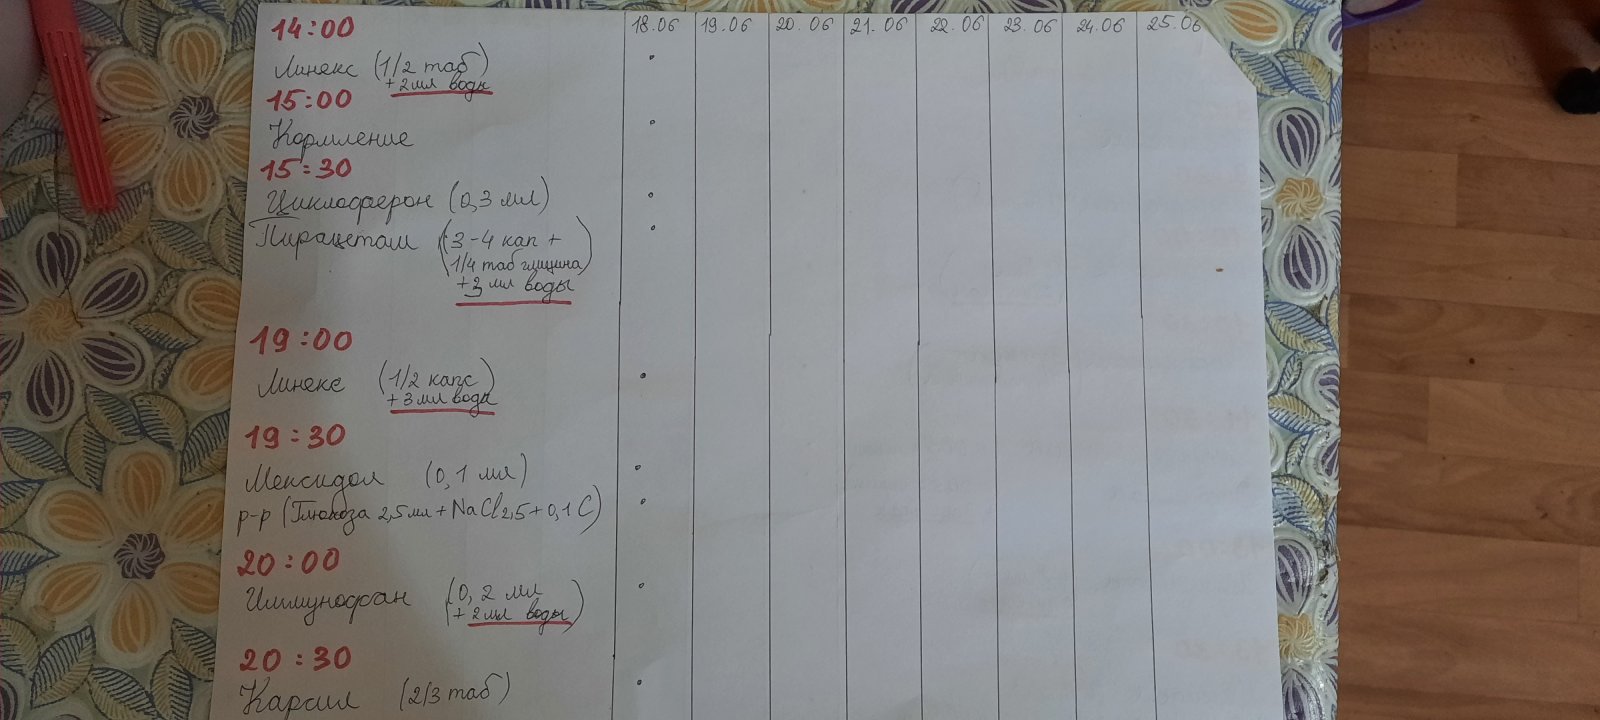 14:00 18.06 19.06 20.06 21.06 22.06 23.06 24.06 25.06
Линекс (1/2 таб)
+2мл воды
15:00
Кормление
15:30
Циклоферон (0,3 мл)
Пирацетам (3-4 кап +
1/4 таб глицина)
+3 мл воды
19:00
Линекс (1/2 капс)
+3мл воды
19:30
Мексидол (0,1 мл)
р-р (Глюкоза 2,5мл+NaCl2,5+0,1C)
20:00
Иммунофан (0,2 мл
+2мл воды)
20:30
Карсил (2/3 таб)